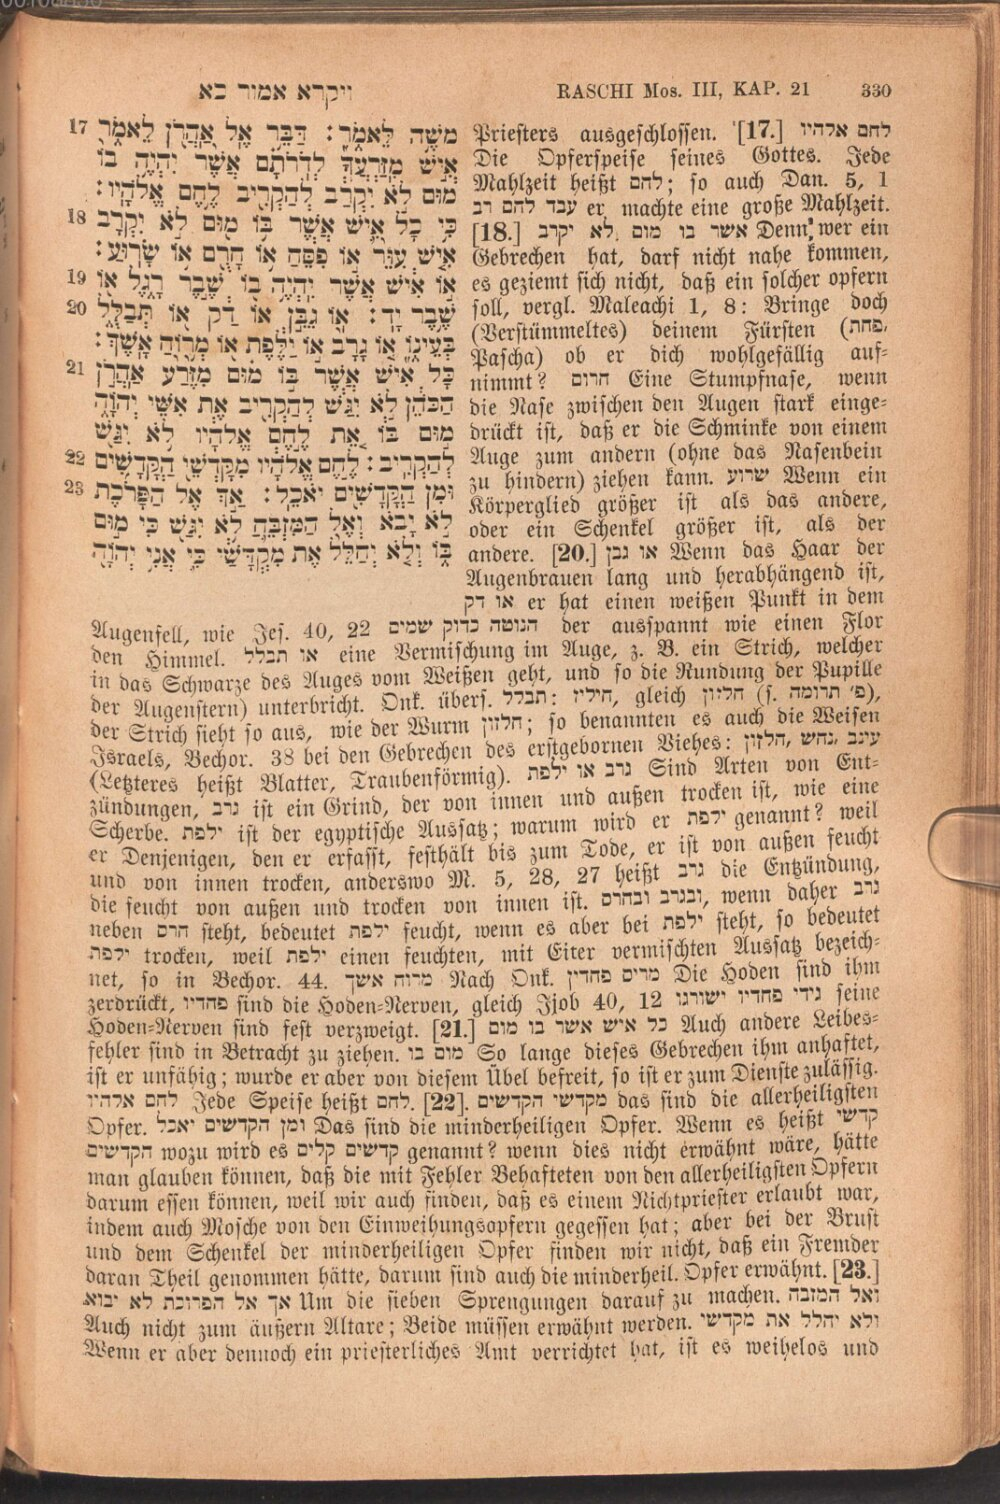 ויקרא אמור כא
RASCHI Mos. III, KAP. 21 330
17 משֶׁה לֵּאמֹר: דַּבֵּר אֶל אַהֲרֹן לֵאמֹר
אִישׁ מִזַּרְעֲךָ לְדֹרֹתָם אֲשֶׁר יִהְיֶה בוֹ
מוּם לֹא יִקְרַב לְהַקְרִיב לֶחֶם אֱלֹהָיו:
18 כִּי כָל אִישׁ אֲשֶׁר בּוֹ מוּם לֹא יִקְרָב
אִישׁ עִוֵּר אוֹ פִסֵּחַ אוֹ חָרֻם אוֹ שָׂרוּעַ:
19 אוֹ אִישׁ אֲשֶׁר יִהְיֶה בוֹ שֶׁבֶר רָגֶל אוֹ
20 שֶׁבֶר יָד: אוֹ גִבֵּן אוֹ דַק אוֹ תְּבַלֻּל
בְּעֵינוֹ אוֹ גָרָב אוֹ יַלֶּפֶת אוֹ מְרוֹחַ אָשֶׁךְ:
21 כָּל אִישׁ אֲשֶׁר בּוֹ מוּם מִזֶּרַע אַהֲרֹן
הַכֹּהֵן לֹא יִגַּשׁ לְהַקְרִיב אֶת אִשֵּׁי יְהוָֹה
מוּם בּוֹ אֵת לֶחֶם אֱלֹהָיו לֹא יִגַּשׁ
22 לְהַקְרִיב: לֶחֶם אֱלֹהָיו מִקָּדְשֵׁי הַקֳּדָשִׁים
23 וּמִן הַקֳּדָשִׁים יֹאכֵל: אַךְ אֶל הַפָּרֹכֶת
לֹא יָבֹא וְאֶל הַמִּזְבֵּחַ לֹא יִגַּשׁ כִּי מוּם
בּוֹ וְלֹא יְחַלֵּל אֶת מִקְדָּשַׁי כִּי אֲנִי יְהוָֹה
Priesters ausgeschlossen. [17.] לחם אלהיו
Die Opferspeise seines Gottes. Jede
Mahlzeit heißt לחם; so auch Dan. 5, 1
עבד לחם רב er machte eine große Mahlzeit.
[18.] אשר בו מום לא יקרב Denn wer ein
Gebrechen hat, darf nicht nahe kommen,
es geziemt sich nicht, daß ein solcher opfern
soll, vergl. Maleachi 1, 8: Bringe doch
(Verstümmeltes) deinem Fürsten (פחת,
Pascha) ob er dich wohlgefällig auf-
nimmt? חרום Eine Stumpfnase, wenn
die Nase zwischen den Augen stark einge-
drückt ist, daß er die Schminke von einem
Auge zum andern (ohne das Nasenbein
zu hindern) ziehen kann. שרוע Wenn ein
Körperglied größer ist als das andere,
oder ein Schenkel größer ist, als der
andere. [20.] או גבן Wenn das Haar der
Augenbrauen lang und herabhängend ist,
או דק er hat einen weißen Punkt in dem
Augenfell, wie Jes. 40, 22 הנוטה כדוק שמים der ausspannt wie einen Flor
den Himmel. או תבלל eine Vermischung im Auge, z. B. ein Strich, welcher
in das Schwarze des Auges vom Weißen geht, und so die Rundung der Pupille
der Augenstern) unterbricht. Onk. übers. תבלל: חיליז, gleich חלזון (s. פ׳ תרומה),
der Strich sieht so aus, wie der Wurm חלזון; so benannten es auch die Weisen
Israels, Bechor. 38 bei den Gebrechen des erstgebornen Viehes: עינב, נחש, חלזון
(Letzteres heißt Blatter, Traubenförmig). גרב או ילפת Sind Arten von Ent-
zündungen, גרב ist ein Grind, der von innen und außen trocken ist, wie eine
Scherbe. ילפת ist der egyptische Aussatz; warum wird er ילפת genannt? weil
er Denjenigen, den er erfasst, festhält bis zum Tode, er ist von außen feucht
und von innen trocken, anderswo M. 5, 28, 27 heißt גרב die Entzündung,
die feucht von außen und trocken von innen ist. ובגרב ובחרם, wenn daher גרב
neben חרם steht, bedeutet ילפת feucht, wenn es aber bei ילפת steht, so bedeutet
ילפת trocken, weil ילפת einen feuchten, mit Eiter vermischten Aussatz bezeich-
net, so in Bechor. 44. מרוח אשך Nach Onk. מריס פחדין Die Hoden sind ihm
zerdrückt, פחדיו sind die Hoden-Nerven, gleich Ijob 40, 12 גידי פחדיו ישורגו seine
Hoden-Nerven sind fest verzweigt. [21.] כל איש אשר בו מום Auch andere Leibes-
fehler sind in Betracht zu ziehen. מום בו So lange dieses Gebrechen ihm anhaftet,
ist er unfähig; wurde er aber von diesem Übel befreit, so ist er zum Dienste zulässig.
לחם אלהיו Jede Speise heißt לחם. [22]. מקדשי הקדשים das sind die allerheiligsten
Opfer. ומן הקדשים יאכל Das sind die minderheiligen Opfer. Wenn es heißt קדשי
הקדשים wozu wird es קדשים קלים genannt? wenn dies nicht erwähnt wäre, hätte
man glauben können, daß die mit Fehler Behafteten von den allerheiligsten Opfern
darum essen können, weil wir auch finden, daß es einem Nichtpriester erlaubt war,
indem auch Mosche von den Einweihungsopfern gegessen hat; aber bei der Brust
und dem Schenkel der minderheiligen Opfer finden wir nicht, daß ein Fremder
daran Theil genommen hätte, darum sind auch die minderheil. Opfer erwähnt. [23.]
אך אל הפרוכת לא יבוא Um die sieben Sprengungen darauf zu machen. ואל המזבה
Auch nicht zum äußern Altare; Beide müssen erwähnt werden. ולא יהלל את מקדשי
Wenn er aber dennoch ein priesterliches Amt verrichtet hat, ist es weihelos und